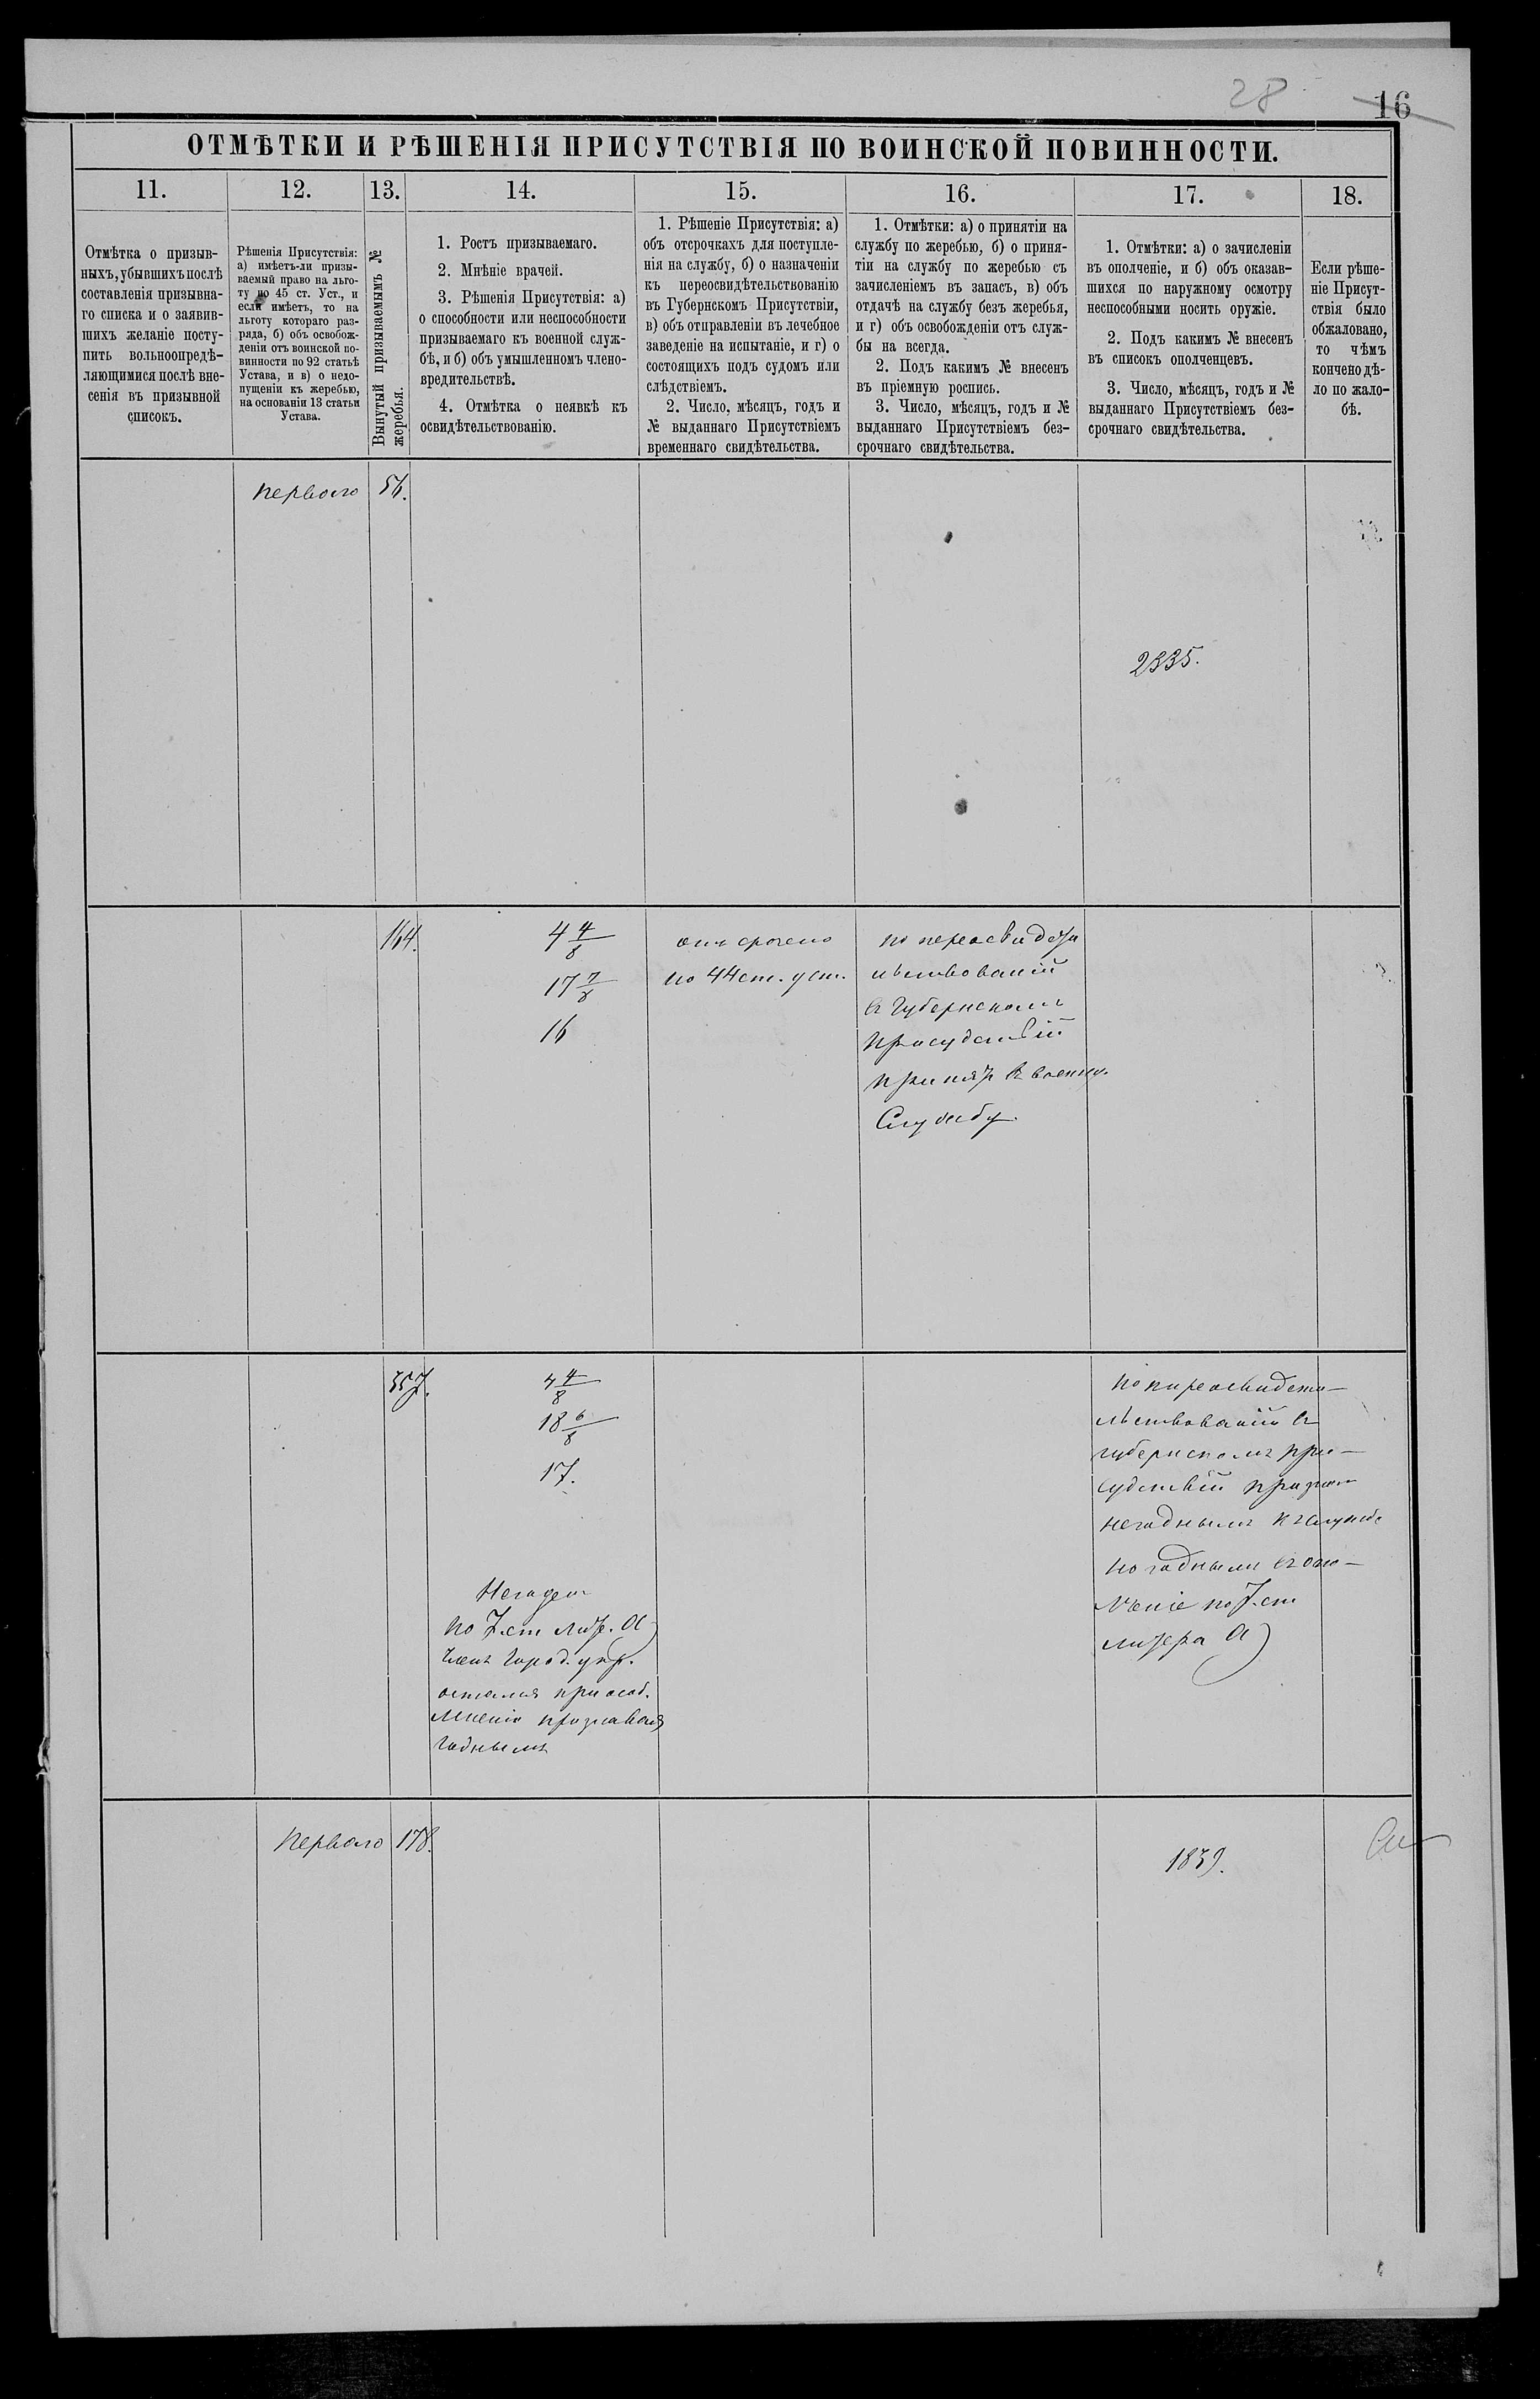 28
16
ОТМѢТКИ И РѢШЕНІЯ ПРИСУТСТВІЯ ПО ВОИНСКОЙ ПОВИННОСТИ.
11.
Отмѣтка о призыв-
ныхъ, убывшихъ послѣ
составленія призывна-
го списка и о заявив-
шихъ желаніе посту-
пить вольноопредѣ-
ляющимися послѣ вне-
сенія въ призывной
списокъ.
12.
Рѣшенія Присутствія:
а) имѣетъ-ли призы-
ваемый право на льго-
ту по 45 ст. Уст., и
если имѣетъ, то на
льготу котораго раз-
ряда, б) объ освобож-
деніи отъ воинской по-
винности по 92 статьѣ
Устава, и в) о недо-
пущеніи къ жеребью,
на основаніи 13 статьи
Устава.
13.
Вынутый призываемымъ №
жеребья.
14.
1. Ростъ призываемаго.
2. Мнѣніе врачей.
3. Рѣшенія Присутствія: а)
о способности или неспособности
призываемаго къ военной служ-
бѣ, и б) объ умышленномъ члено-
вредительствѣ.
4. Отмѣтка о неявкѣ къ
освидѣтельствованію.
15.
1. Рѣшеніе Присутствія: а)
объ отсрочкахъ для поступле-
нія на службу, б) о назначеніи
къ переосвидѣтельствованію
въ Губернскомъ Присутствіи,
в) объ отправленіи въ лечебное
заведеніе на испытаніе, и г) о
состоящихъ подъ судомъ или
слѣдствіемъ.
2. Число, мѣсяцъ, годъ и
№ выданнаго Присутствіемъ
временнаго свидѣтельства.
16.
1. Отмѣтки: а) о принятіи на
службу по жеребью, б) о приня-
тіи на службу по жеребью съ
зачисленіемъ въ запасъ, в) объ
отдачѣ на службу безъ жеребья,
и г) объ освобожденіи отъ служ-
бы на всегда.
2. Подъ какимъ № внесенъ
въ пріемную роспись.
3. Число, мѣсяцъ, годъ и №
выданнаго Присутствіемъ без-
срочнаго свидѣтельства.
17.
1. Отмѣтки: а) о зачисленіи
въ ополченіе, и б) объ оказав-
шихся по наружному осмотру
неспособными носить оружіе.
2. Подъ какимъ № внесенъ
въ списокъ ополченцевъ.
3. Число, мѣсяцъ, годъ и №
выданнаго Присутствіемъ без-
срочнаго свидѣтельства.
18.
Если рѣше-
ніе Присут-
ствія было
обжаловано,
то чѣмъ
кончено дѣ-
ло по жало-
бѣ.
перваго
56.
2335.
164.
4 4/8
17 7/8
16
отсрочено
по 44 ст. уст.
по переосвидете
льствованіи
въ Губернскомъ
присудствіи
принятъ въ военну.
Службу.
357.
4 4/8
18 6/8
17.
Негоденъ
по 7. ст лит. А)
Членъ Город. упр.
остался при особ.
мненіи признавая
годнымъ
по переосвидете-
льствованіи въ
губернскомъ при-
судствіи признанъ
негоднымъ къ службе
но годнымъ въ опо-
лченіе по 7. ст
литера А)
перваго
178.
1839.